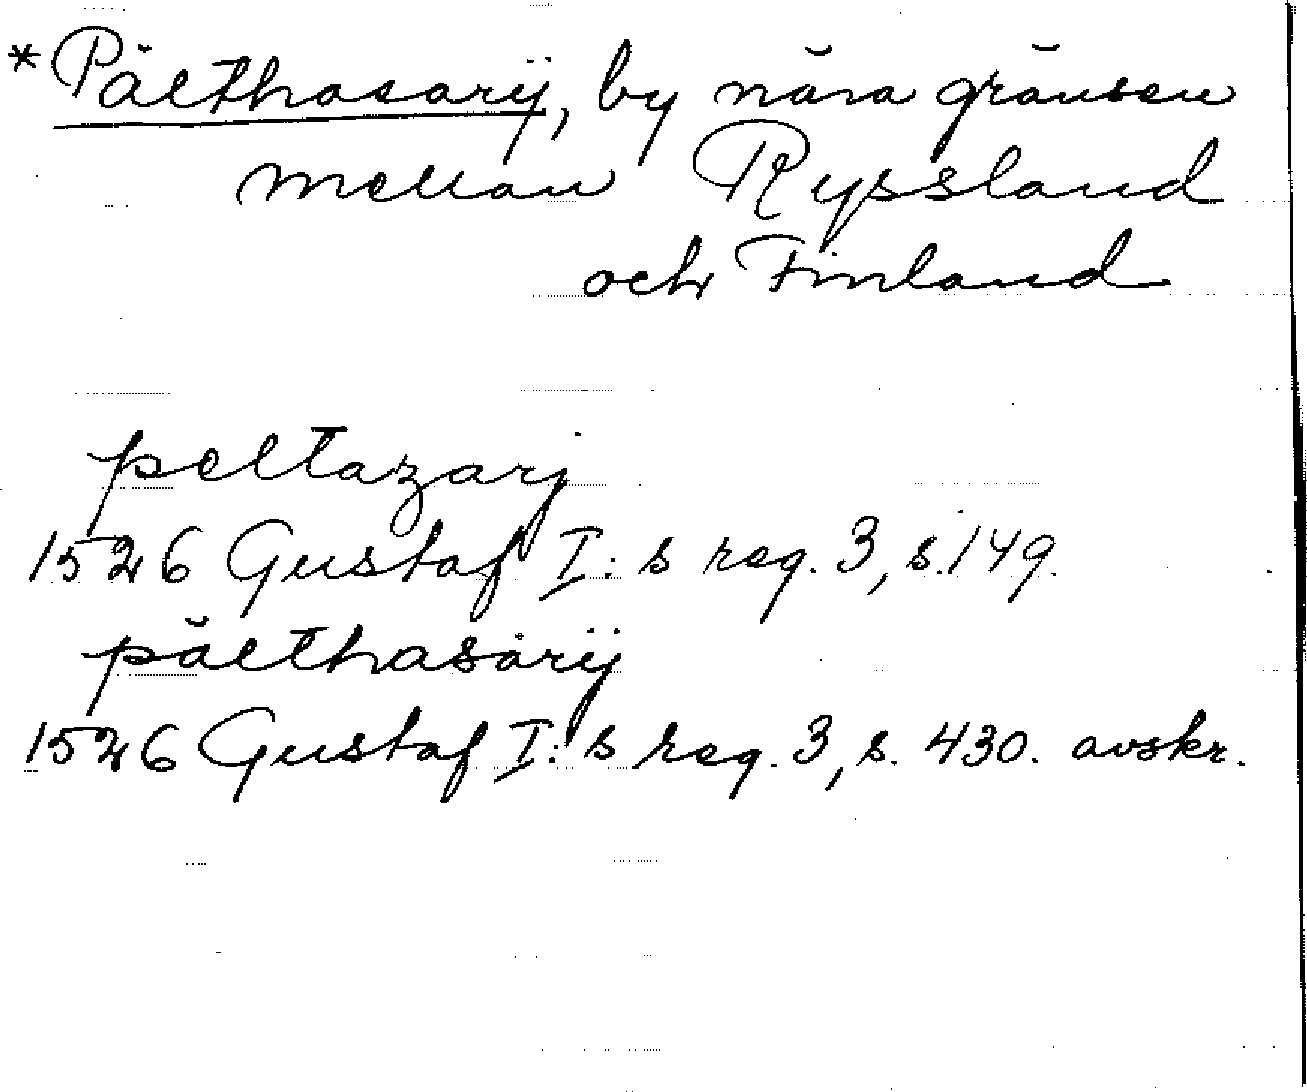 *Pälthasarÿ, by nära gränsen
mellan Ryssland
och Finland
peltazarj
1526 Gustaf I:s reg. 3, s. 149.
pälthasarÿ
1526 Gustaf I:s reg. 3, s. 430. avskr.